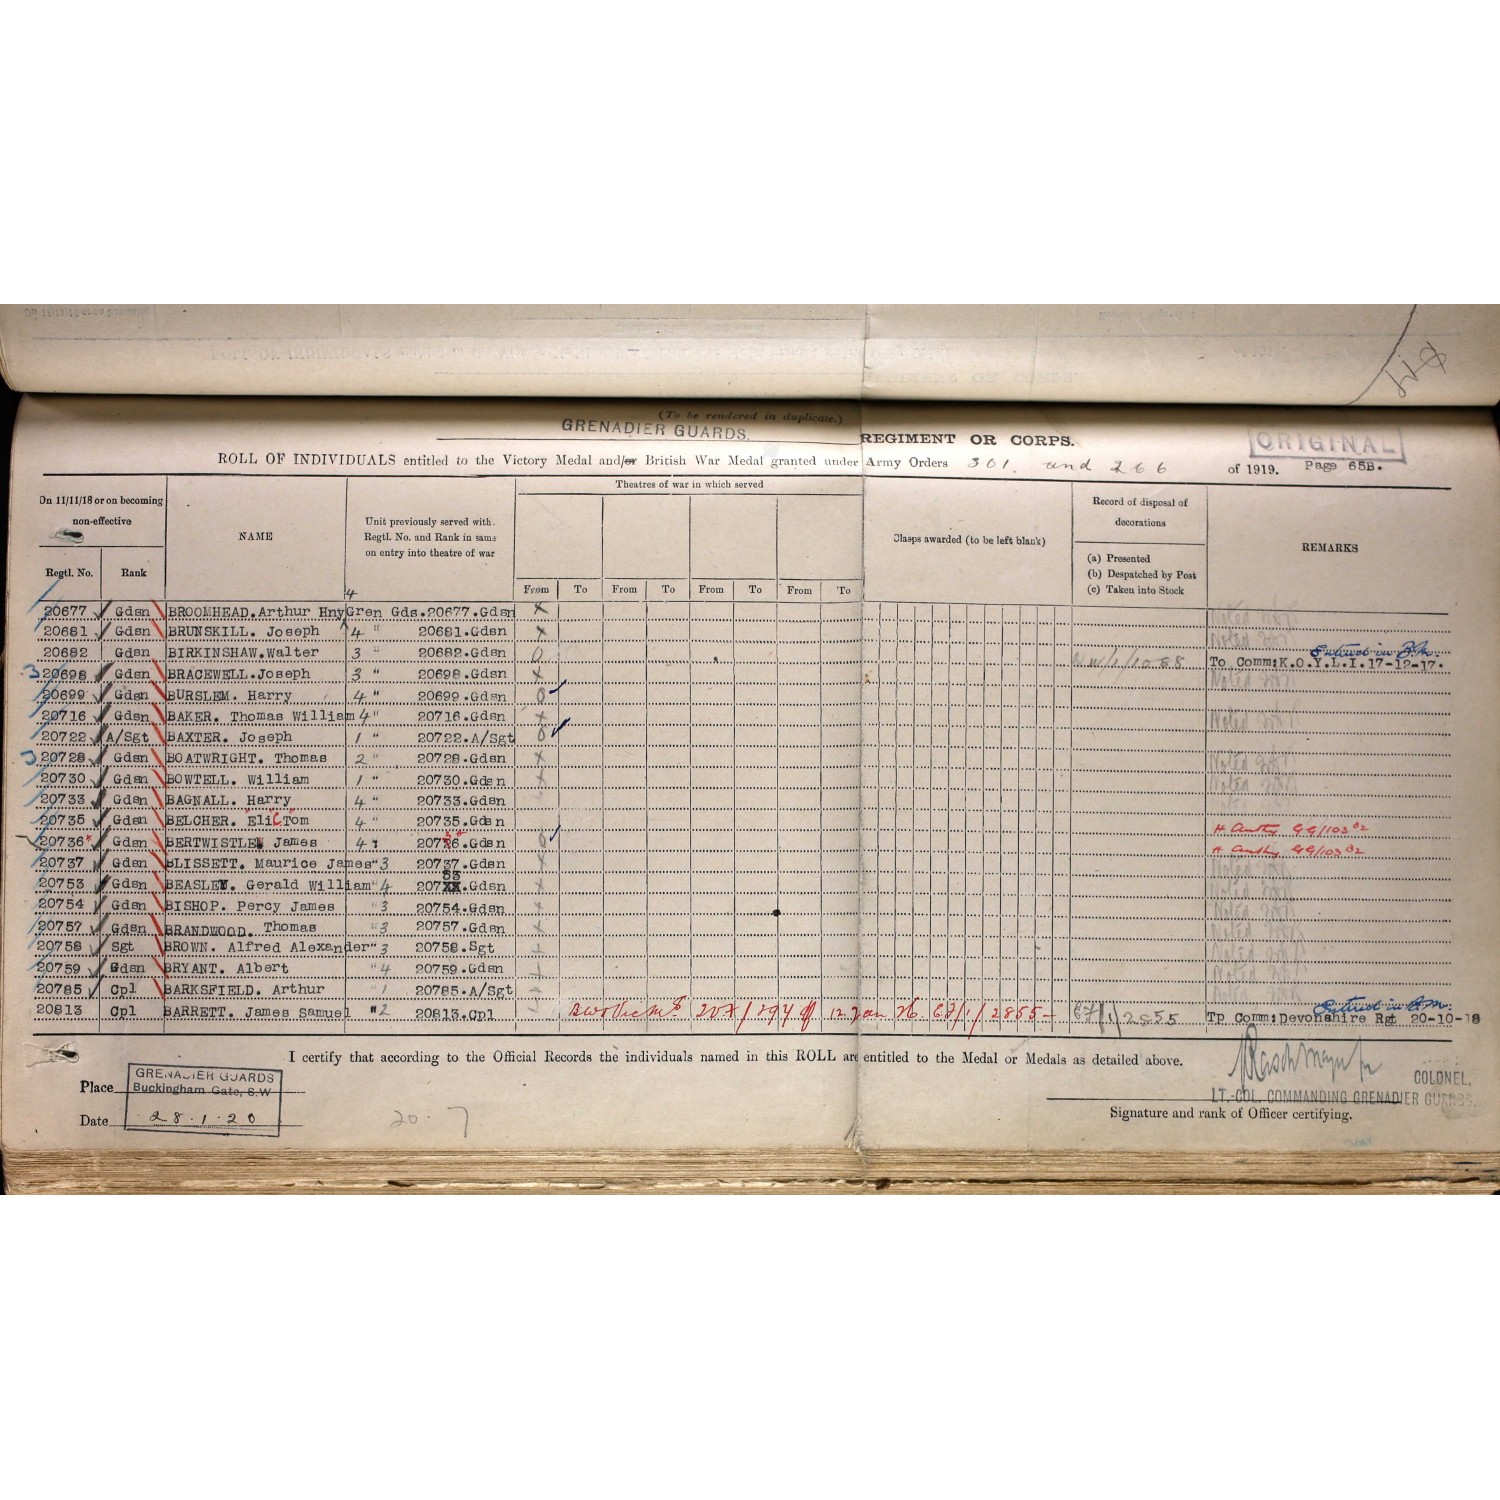 (To be rendered in duplicate.)
GRENADIER GUARDS. REGIMENT OR CORPS.
ORIGINAL
ROLL OF INDIVIDUALS entitled to the Victory Medal and/or British War Medal granted under Army Orders 301. and 266 of 1919. Page 65B.
On 11/11/18 or on becoming non-effective
Regtl. No. Rank
NAME
Unit previously served with. Regtl. No. and Rank in same on entry into theatre of war
Theatres of war in which served
From To From To From To From To
Clasps awarded (to be left blank)
Record of disposal of decorations
(a) Presented
(b) Despatched by Post
(c) Taken into Stock
REMARKS
20677 Gdsn BROOMHEAD.Arthur Hny 4 Gren Gds.20677.Gdsn x
20681 Gdsn BRUNSKILL. Joseph 4 " 20681.Gdsn x
20682 Gdsn BIRKINSHAW.Walter 3 " 20682.Gdsn 0 To Comm:K.O.Y.L.I.17-12-17. Entered in B.M.
3 20698 Gdsn BRACEWELL.Joseph 3 " 20698.Gdsn x
20699 Gdsn BURSLEM. Harry 4 " 20699.Gdsn 0
20716 Gdsn BAKER. Thomas William 4 " 20716.Gdsn x
20722 A/Sgt BAXTER. Joseph 1 " 20722.A/Sgt 0
3 20728 Gdsn BOATWRIGHT. Thomas 2 " 20728.Gdsn x
20730 Gdsn BOWTELL. William 1 " 20730.Gdsn x
20733 Gdsn BAGNALL. Harry 4 " 20733.Gdsn
20735 Gdsn BELCHER. Eli Tom 4 " 20735.Gdsn
20736 Gdsn BERTWISTLE James 4 " 20736.Gdsn 0
20737 Gdsn BLISSETT. Maurice James " 3 20737.Gdsn x
20753 Gdsn BEASLEY. Gerald William " 4 20753.Gdsn x
20754 Gdsn BISHOP. Percy James " 3 20754.Gdsn x
20757 Gdsn BRANDWOOD. Thomas " 3 20757.Gdsn x
20758 Sgt BROWN. Alfred Alexander " 3 20758.Sgt x
20759 Gdsn BRYANT. Albert " 4 20759.Gdsn x
20785 Cpl BARKSFIELD. Arthur " 1 20785.A/Sgt x
20813 Cpl BARRETT. James Samuel " 2 20813.Cpl 12 Jan 26 67/1/2855 67/1/2855 Tp Comm:Devonshire Rgt 20-10-18 Entered in B.M.
I certify that according to the Official Records the individuals named in this ROLL are entitled to the Medal or Medals as detailed above.
Place GRENADIER GUARDS
Buckingham Gate, S.W
Date 28.1.20
20.7
COLONEL,
LT.-COL. COMMANDING GRENADIER GUARDS.
Signature and rank of Officer certifying.